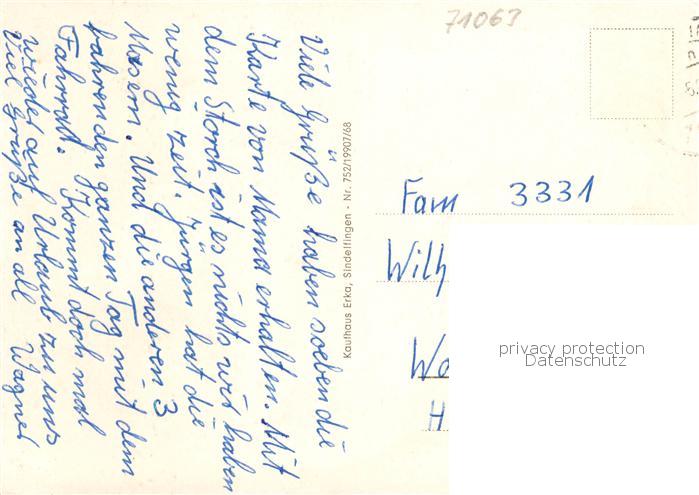 71063
Viele Grüße haben soeben die
Karte von Mama erhalten. Mit
dem Storch ist es nichts wir haben
wenig Zeit. Jürgen hat die
Masern. Und die anderen 3
fahren den ganzen Tag mit dem
Fahrrad. Kommt doch mal
wieder auf Urlaub zu uns
Viel Grüße an all Wagner
Kaufhaus Erka, Sindelfingen - Nr. 752/19907/68
Fam 3331
Wilh
Wa
H
privacy protection
Datenschutz